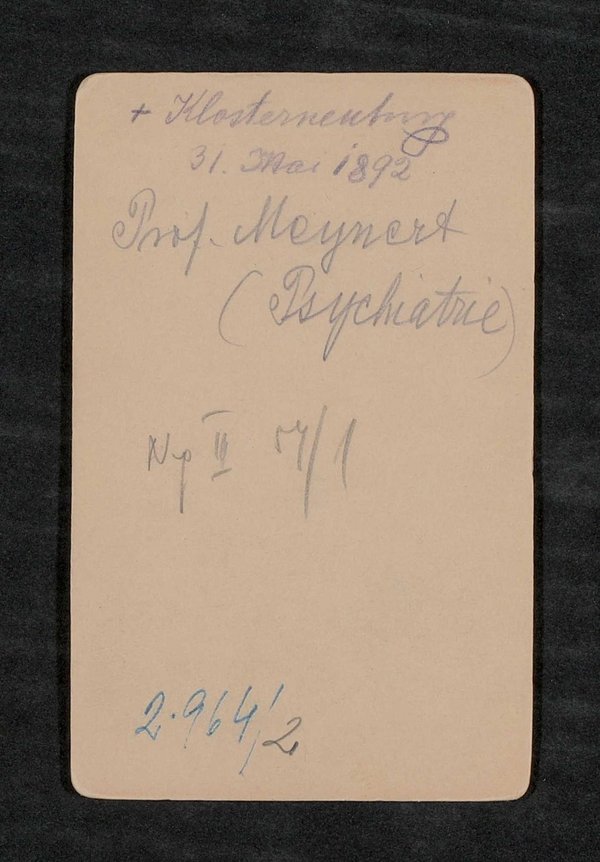 + Klosterneuburg
31. Mai 1892
Prof. Meynert
(Psychiatrie)
III
2.964/2